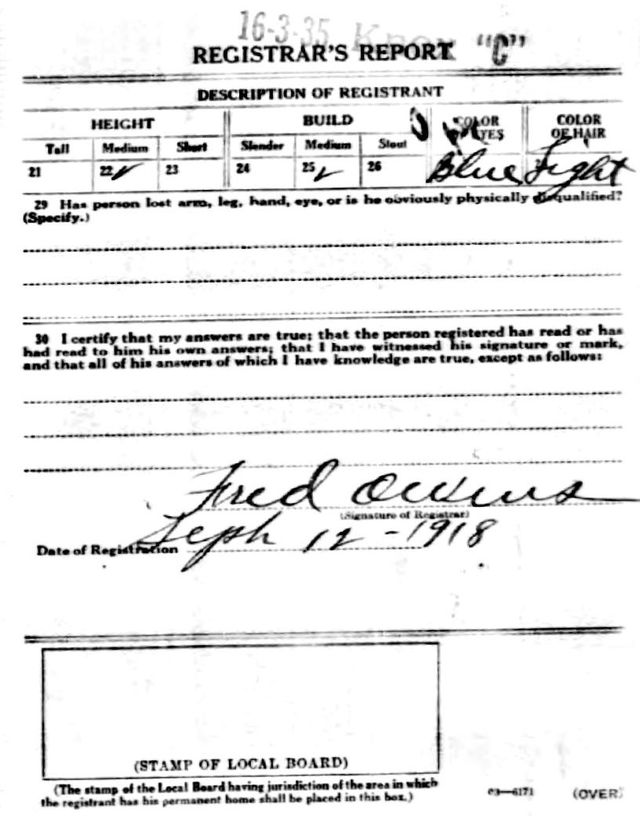 16-3-35 "C"
REGISTRAR'S REPORT
DESCRIPTION OF REGISTRANT
HEIGHT BUILD COLOR OF EYES COLOR OF HAIR
Tall Medium Short Slender Medium Stout
21 22 ✓ 23 24 25 ✓ 26 Blue Light
29 Has person lost arm, leg, hand, eye, or is he obviously physically disqualified?
(Specify.)
30 I certify that my answers are true; that the person registered has read or has
had read to him his own answers; that I have witnessed his signature or mark,
and that all of his answers of which I have knowledge are true, except as follows:
Fred Owens
(Signature of Registrar)
Date of Registration Seph 12 - 1918
(STAMP OF LOCAL BOARD)
(The stamp of the Local Board having jurisdiction of the area in which
the registrant has his permanent home shall be placed in this box.)
03—6171 (OVER)